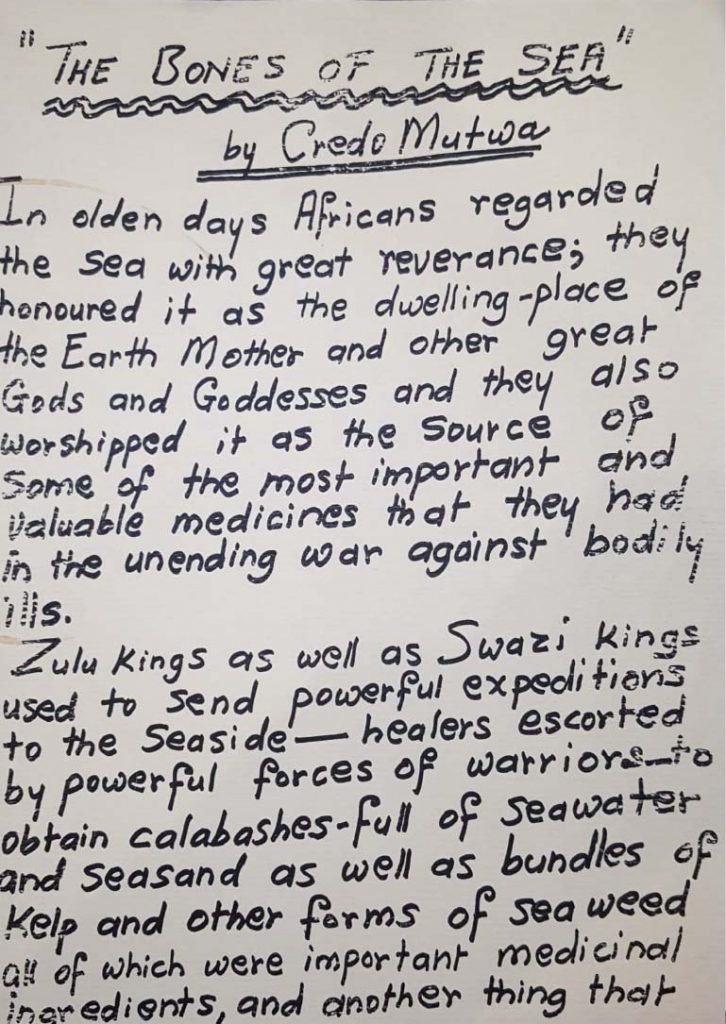 "THE BONES OF THE SEA"
by Credo Mutwa
In olden days Africans regarded
the sea with great reverance; they
honoured it as the dwelling-place of
the Earth Mother and other great
Gods and Goddesses and they also
worshipped it as the source of
some of the most important and
valuable medicines that they had
in the unending war against bodily
ills.
Zulu kings as well as Swazi kings
used to send powerful expeditions
to the seaside — healers escorted
by powerful forces of warriors — to
obtain calabashes-full of seawater
and seasand as well as bundles of
kelp and other forms of sea weed
all of which were important medicinal
ingredients, and another thing that